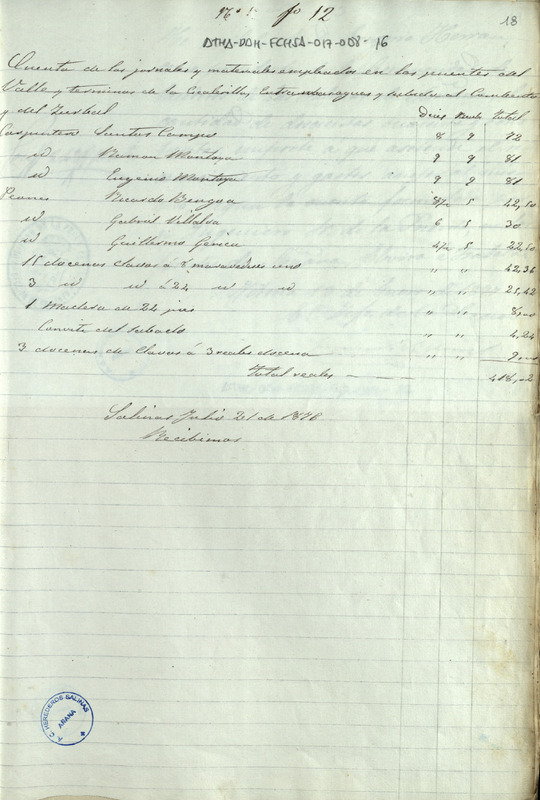 fº 12
18
ATHA-DAH-FCHSA-017-008-16
Cuenta de los jornales y materiales empleados en los puentes del
Valle y terminos de la Escalerilla, Entrambasaguas y subida al Combento
y del Zurbal
Dias Reals Total
Carpintero Santos Campo 8 9 72
id Ramon Montoya 9 9 81
id Eugenio Montoya 9 9 81
Peones Ricardo Bengoa 8½ 5 42,50
id Gabriel Villalva 6 5 30
id Guillermo Genica 4½ 5 22,50
15 docenas clavos á 8 maravedises uno " " 42,36
3 id id á 24 id id " " 25,42
1 Madera de 24 pies " "
Convite del sabado " " 4,24
3 docenas de clavos á 3 reales docena " " 9
Total reales
Salinas Julio 21 de 1876
Recibimos
C. HEREDEROS SALINAS
AÑANA